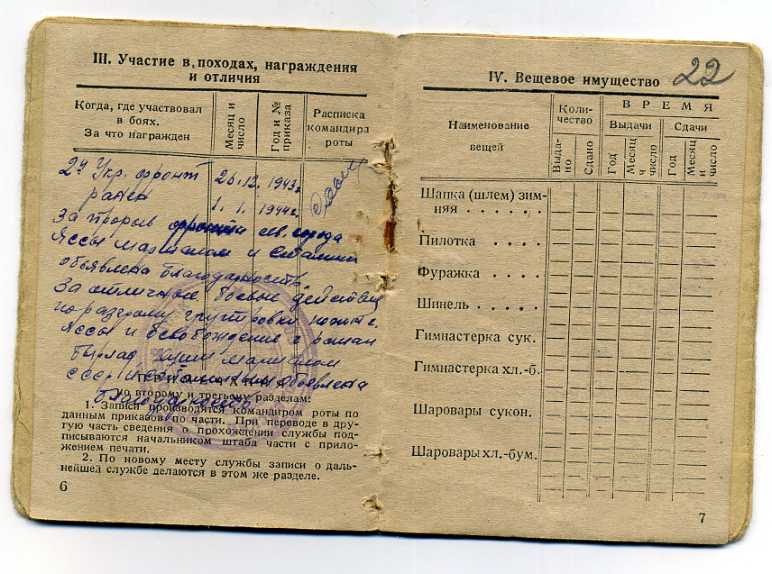 III. Участие в походах, награждения
и отличия
Когда, где участвовал
в боях.
За что награжден
Месяц и
число
Год и №
приказа
Расписка
командира
роты
2й Укр. фронт 26.12. 1943г.
ранен 1. 1. 1944г.
За прорыв фронта св. города
Яссы маршалом и Сталиным
объявлена благодарность.
За отличные боевые действия
по разгрому группировки
Яссы и освобождение г. Роман
Бырлад, Хуши маршалом
СССР Сталиным объявлена
благодарность
ПРИМЕЧАНИЕ
ко второму и третьему разделам:
1. Записи производятся командиром роты по
данным приказов по части. При переводе в дру-
гую часть сведения о прохождении службы под-
писываются начальником штаба части с прило-
жением печати.
2. По новому месту службы записи о даль-
нейшей службе делаются в этом же разделе.
6
IV. Вещевое имущество 22
Наименование
вещей
Коли-
чество
ВРЕМЯ
Выдачи
Сдачи
Выда-
но
Сдано
Год
Месяц
и число
Год
Месяц
и число
Шапка (шлем) зим-
няя . . . . . .
Пилотка . . . .
Фуражка . . . .
Шинель . . . .
Гимнастерка сук.
Гимнастерка хл.-б.
Шаровары сукон.
Шаровары хл.-бум.
7